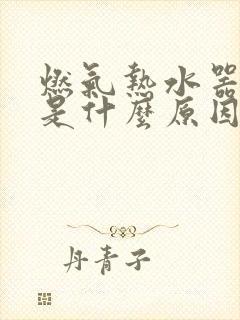 燃氣熱水器
是什麼原因
丹青子